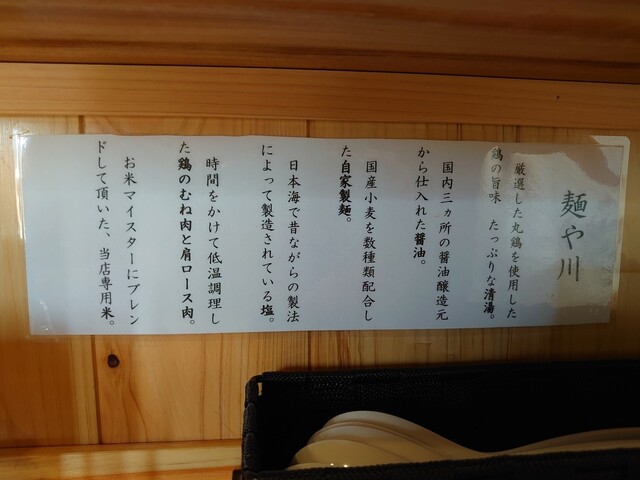 麺や川
厳選した丸鶏を使用した
鶏の旨味 たっぷりな清湯。
国内三ヵ所の醤油醸造元
から仕入れた醤油。
国産小麦を数種類配合し
た自家製麺。
日本海で昔ながらの製法
によって製造されている塩。
時間をかけて低温調理し
た鶏のむね肉と肩ロース肉。
お米マイスターにブレン
ドして頂いた、当店専用米。